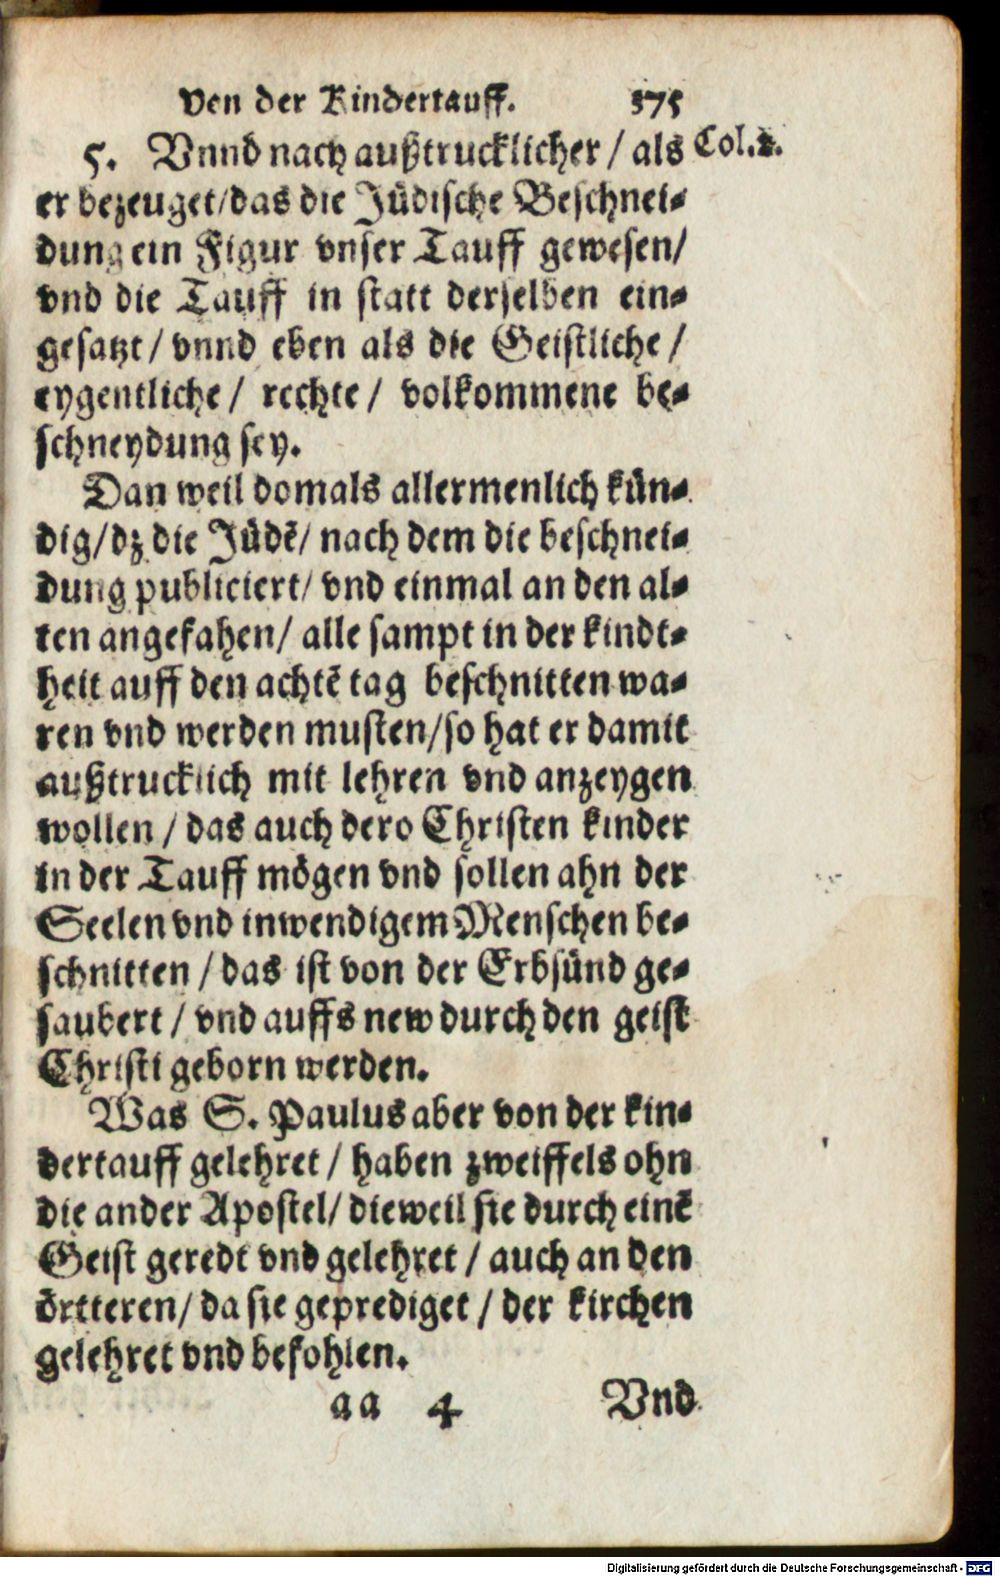 Von der Kindertauff. 375
5. Vnnd nach außtrucklicher / als Col.2.
er bezeuget/das die Jüdische Beschnei-
dung ein Figur vnser Tauff gewesen/
vnd die Tauff in statt derselben ein-
gesatzt/ vnnd eben als die Geistliche /
eygentliche / rechte / volkommene be-
schneydung sey.
Dan weil domals allermenlich kün-
dig/dz die Jüdē/ nach dem die beschnei-
dung publiciert/ vnd einmal an den al-
ten angefahen/ alle sampt in der kindt-
heit auff den achtē tag beschnitten wa-
ren vnd werden musten/so hat er damit
außtrucklich mit lehren vnd anzeygen
wollen / das auch dero Christen kinder
in der Tauff mögen vnd sollen ahn der
Seelen vnd inwendigem Menschen be-
schnitten / das ist von der Erbsünd ge-
saubert / vnd auffs new durch den geist
Christi geborn werden.
Was S. Paulus aber von der kin-
dertauff gelehret / haben zweiffels ohn
die ander Apostel/ dieweil sie durch einē
Geist geredt vnd gelehret / auch an den
örtteren/ da sie geprediget / der kirchen
gelehret vnd befohlen.
aa 4 Vnd
Digitalisierung gefördert durch die Deutsche Forschungsgemeinschaft - DFG